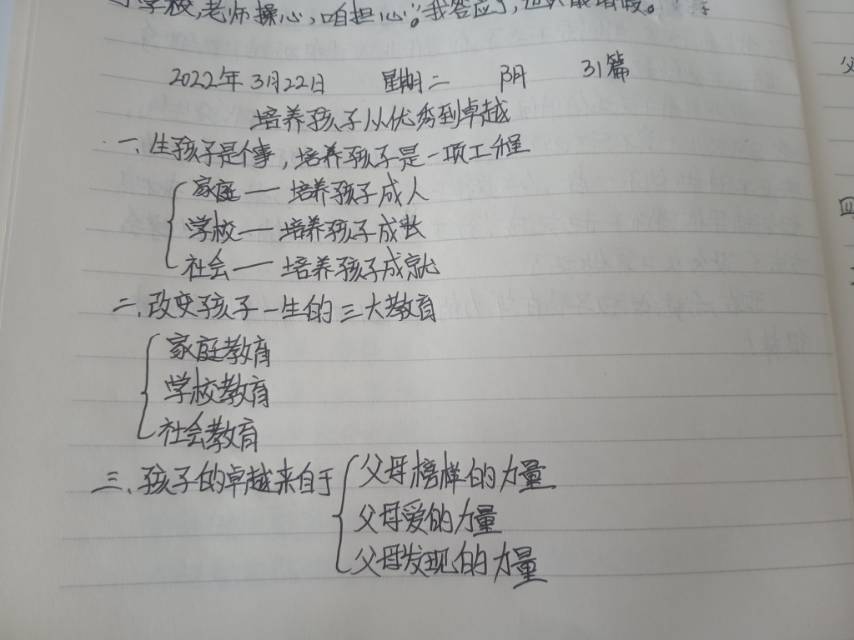 学校,老师操心,咱担心。我答应了,
2022年3月22日 星期二 阴 31篇
培养孩子从优秀到卓越
一、生孩子是个事,培养孩子是一项工程
家庭——培养孩子成人
学校——培养孩子成长
社会——培养孩子成就
二、改变孩子一生的三大教育
家庭教育
学校教育
社会教育
三、孩子的卓越来自于
父母榜样的力量
父母爱的力量
父母发现的力量
父
四